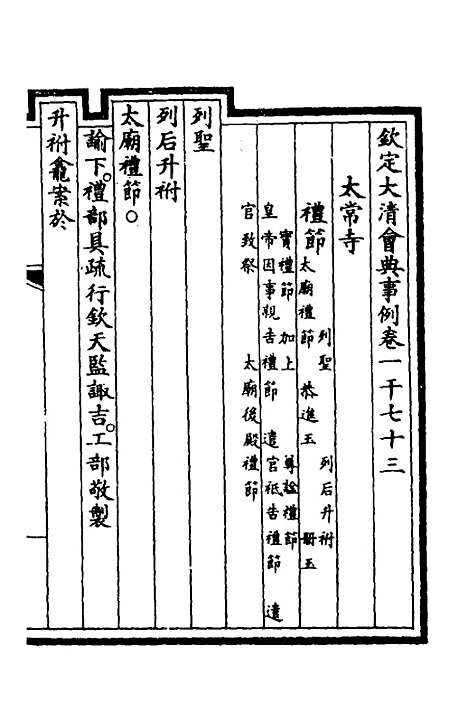 欽定大清會典事例卷一千七十三
太常寺
禮節
列聖　列后升祔
太廟禮節　恭進玉　冊玉
寶禮節　加上　尊諡禮節
皇帝因事親告禮節　遣官祗告禮節　遣
官致祭　太廟後殿禮節
列聖
列后升祔
太廟禮節。
諭下。禮部具疏行欽天監諏吉。工部敬製
升祔龕案於